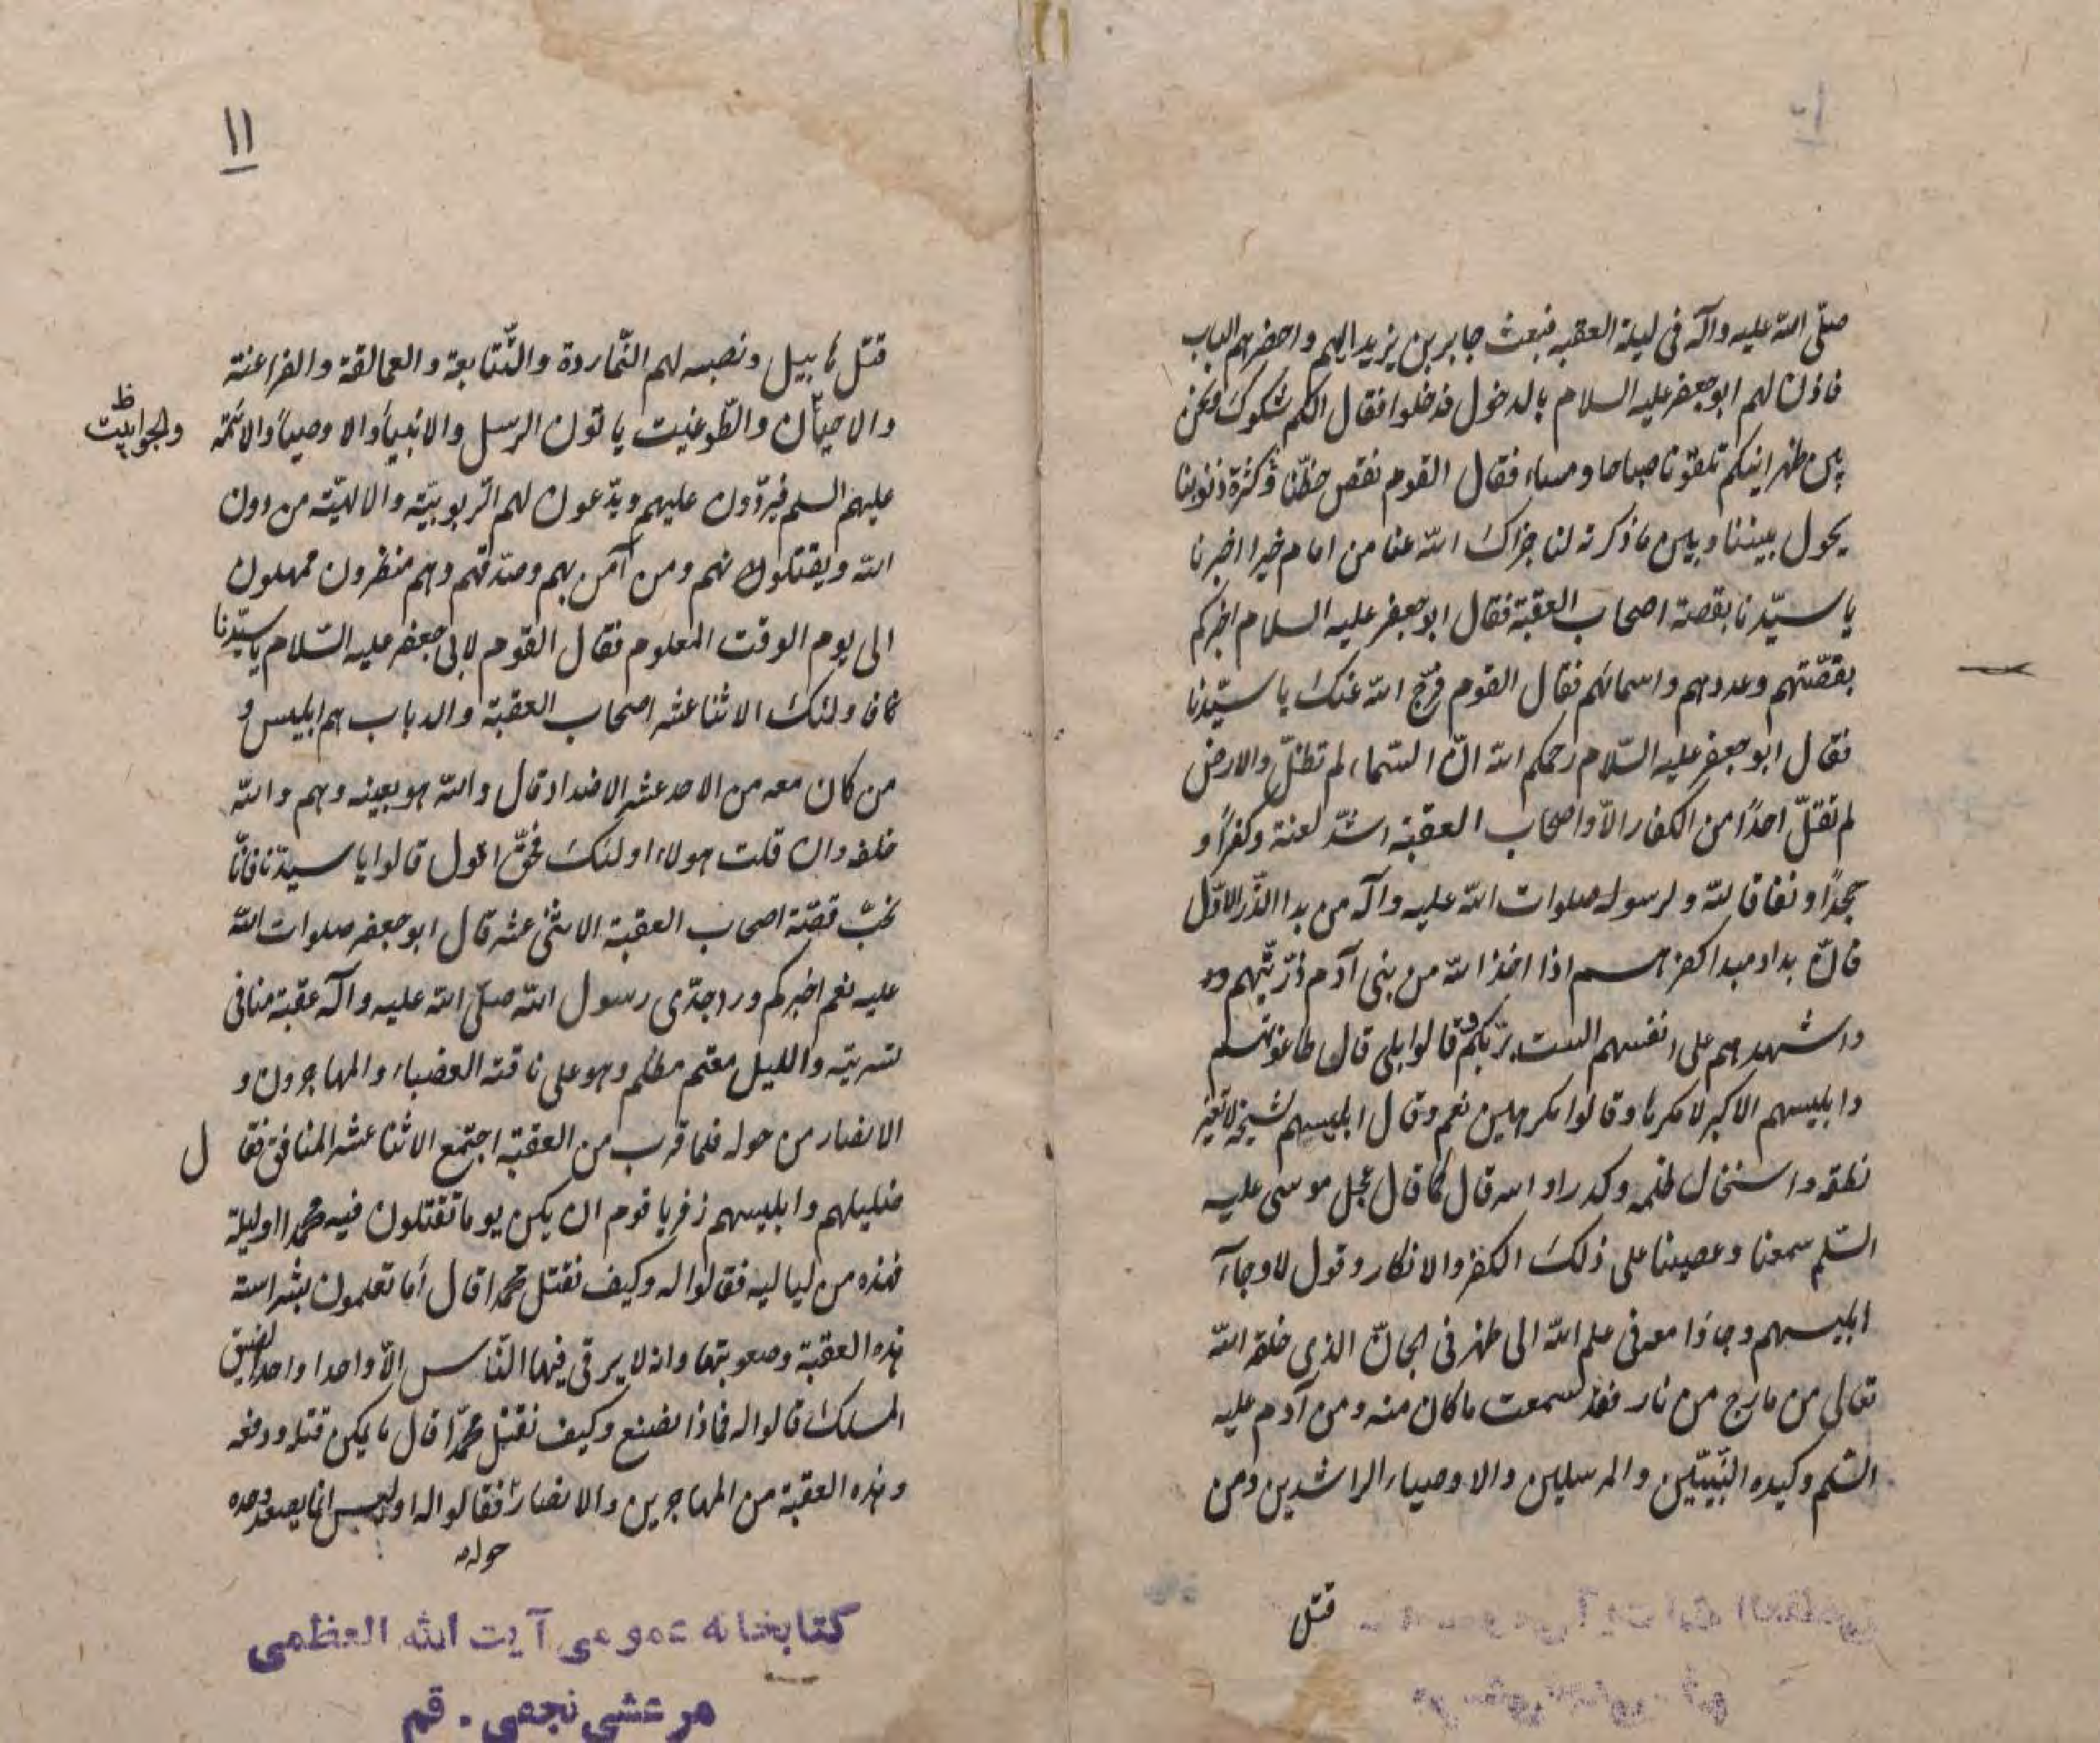 صلّى الله عليه وآله فى ليلة العقبه فبعث جابر بن يزيد اليهم واحضرهم الباب
فاذن لهم ابو جعفر عليه السلام بالدخول فدخلوا فقال الكم شكوك ونحن
بين ظهرانيكم تلقونا صباحا ومساء فقال القوم نقص حظنا وكثرة ذنوبنا
يحول بيننا وبين ما ذكرته لنا جزاك الله عنا من امام خيرا اخبرنا
يا سيّدنا بقصة اصحاب العقبة فقال ابو جعفر عليه السلام اخبركم
بقصّتهم وعددهم واسمائهم فقال القوم فرّج الله عنك يا سيّدنا
فقال ابو جعفر عليه السّلام رحمكم الله انّ السّماء لم تظلّ والارض
لم تقلّ احدًا من الكفار الّا واصحاب العقبة اشدّ لعنة وكفرًا و
جحدًا ونفاقا لله ولرسوله صلوات الله عليه وآله من بدا الذّر الاوّل
فانّ بداو مبدا كفرهم اذا اخذ الله من بنى آدم ذرّيّتهم
واشهدهم على انفسهم الست بربّكم قالوا بلى قال طاغوتهم
وابليسهم الاكبر لا مكرها وقالوا مكرهين نعم وقال ابليسهم
نطقه قال كما قال عجل موسى عليه
السّلم سمعنا وعصينا على ذلك الكفر والانكار وقول لا وجاء
ابليسهم وجاؤا معه فى علم الله الى ظهر فى الجانّ الذى خلقه الله
تعالى من مارج من نار فقد سمعت ما كان منه ومن آدم عليه
السّلم وكيده النّبيّين والمرسلين والاوصياء الراشدين ومن
قتل
١١
قتل هابيل ونصبه لهم النّماردة والتّتابعة والعمالقة والفراعنة
والاحيان والطّوغيت ياتون الرسل والانبياء والاوصياء والائمّة
والجوابيت ظ
عليهم السلم فيردّون عليهم ويدّعون لهم الرّبوبيّة والالهيّة من دون
الله ويقتلونهم ومن آمن بهم وصدّقهم وهم منظرون ممهلون
الى يوم الوقت المعلوم فقال القوم لابى جعفر عليه السّلام يا سيّدنا
فاولئك الاثنا عشر اصحاب العقبة والدباب هم ابليس و
من كان معه من الاحد عشر الاضداد قال والله هو بعينه وهم والله
خلفه وان قلت هولاء اولئك فحقّ اقول قالوا يا سيدّنا فانّا
نحبّ قصّة اصحاب العقبة الاثنى عشر قال ابو جعفر صلوات الله
عليه نعم اخبركم ورد جدّى رسول الله صلّى الله عليه وآله عقبة منافى
لسريته والليل معتم مظلم وهو على ناقته العضباء والمهاجرون و
الانصار من حوله فلما قرب من العقبة اجتمع الاثنا عشر المنافق فقال
ضليلهم وابليسهم زفر يا قوم ان يكن يوما تقتلون فيه محمدا اوليلة
فهذه من لياليه فقالوا له وكيف نقتل محمدا قال أما تعلمون بشراسة
هذه العقبة وصعوبتها وانه لا يرقى فيها النّاس الّا واحدا واحدا لضيق
المسلك قالوا له فماذا نصنع وكيف نقتل محمّدا قال ما يمكن قتله ودفعه
وهذه العقبة من المهاجرين والانصار فقالوا له اوليس انما يصعد وحده
حوله
كتابخانه عمومى آيت الله العظمى
مرعشى نجفى - قم